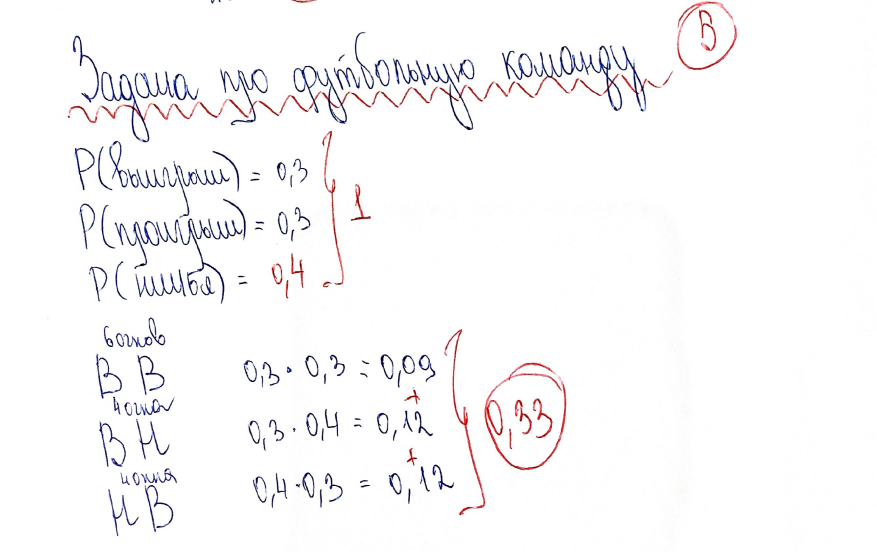 В
Задача про футбольную команду
P(выигрыш) = 0,3
P(проигрыш) = 0,3
P(ничья) = 0,4
1
6 очков
В В 0,3 · 0,3 = 0,09
4 очка
+
В Н 0,3 · 0,4 = 0,12
4 очка
+
Н В 0,4 · 0,3 = 0,12
0,33